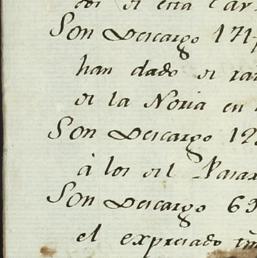 de esta Car
Son Descargo 171
han dado de ra
de la Noria en
Son Descargo 12
à los del Para
Son Descargo 63
el expresado